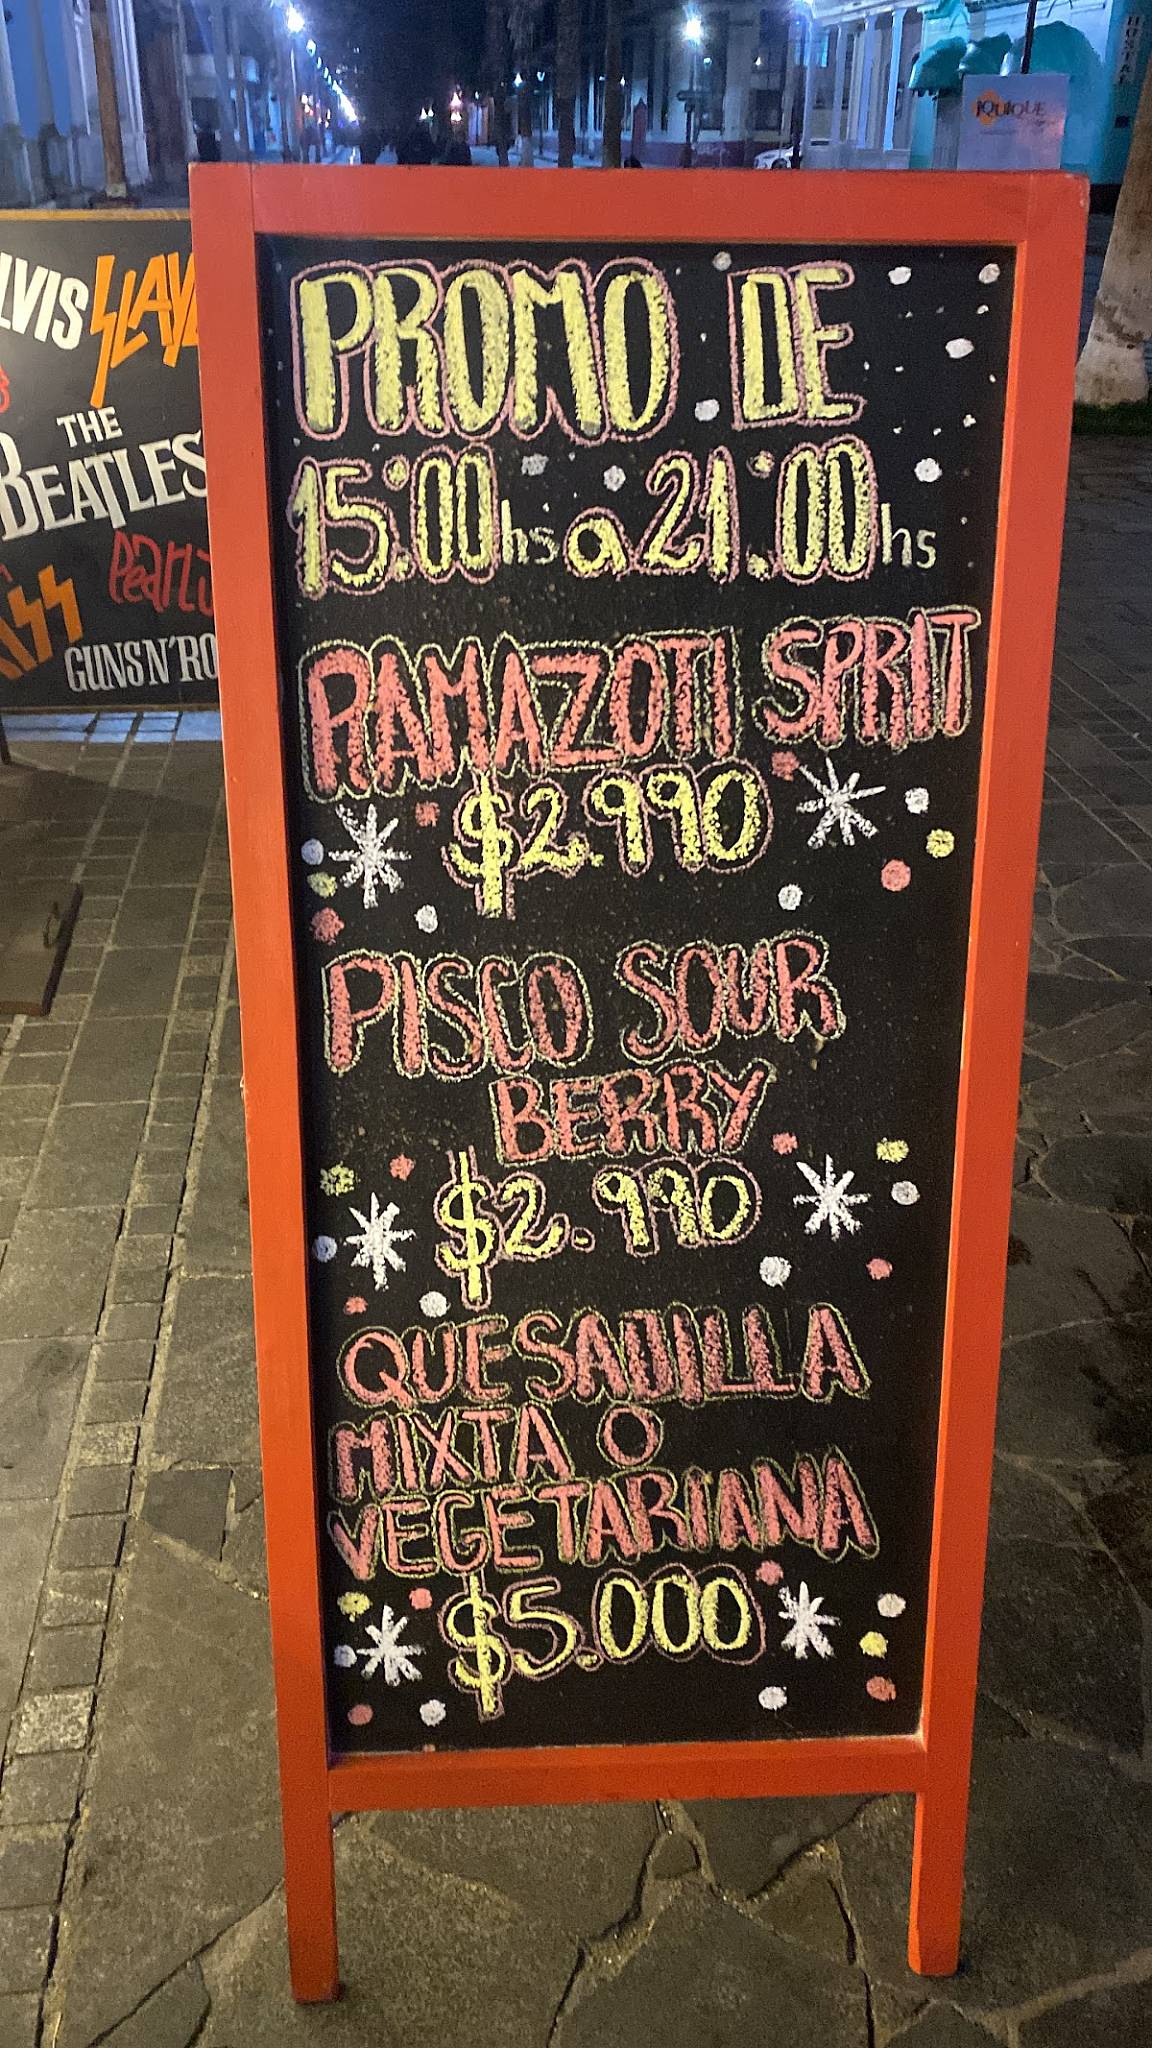 PROMO DE
15:00hs a 21:00hs
RAMAZOTI SPRIT
$2.990
PISCO SOUR
BERRY
$2.990
QUESADILLA
MIXTA O
VEGETARIANA
$5.000
SLAY
THE
BEATLES
GUNS N' RO
IQUIQUE
HOSTAL